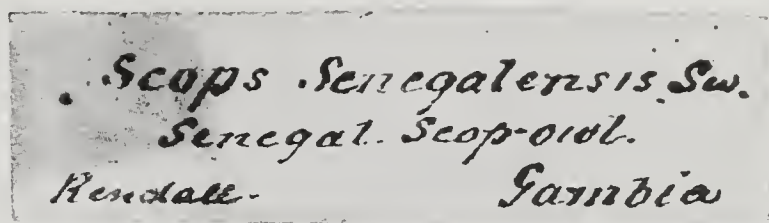 Scops Senegalensis. Sw.
Senegal. Scop-owl.
Rendall. Gambia